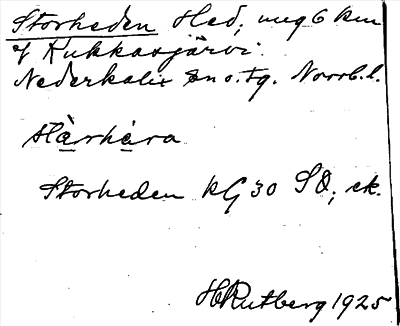 Storheden Hed, m 6 km
Kukkasjärvi.
Nederkalix sn o. tg. Norrb. l.
Storheden KG 30 SO; ek.
HRutberg 1925